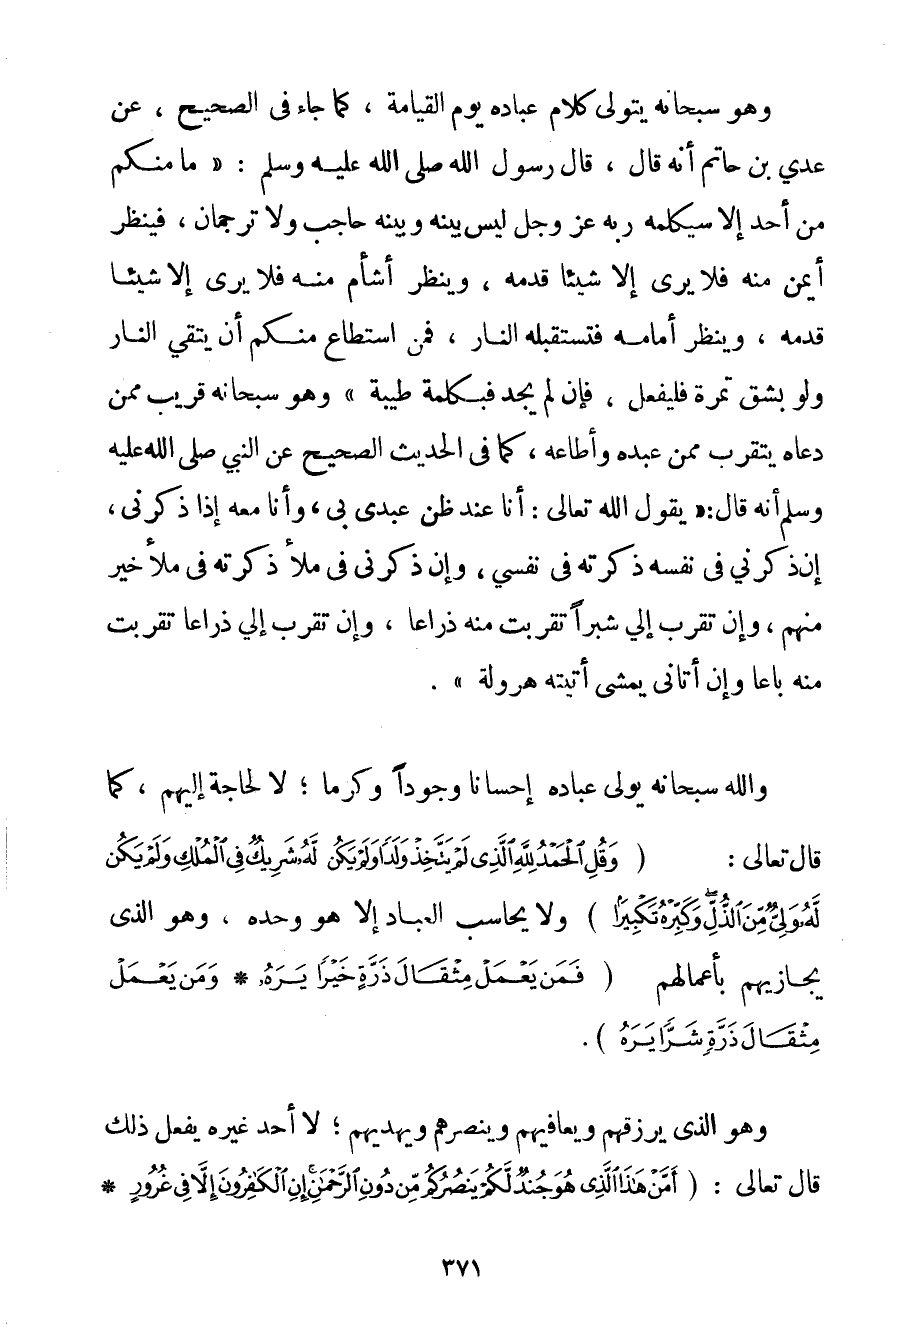 وهو سبحانه يتولى كلام عباده يوم القيامة ، كما جاء فى الصحيح ، عن
عدي بن حاتم أنه قال ، قال رسول الله صلى الله عليه وسلم : « ما منكم
من أحد إلا سيكلمه ربه عز وجل ليس بينه وبينه حاجب ولا ترجمان ، فينظر
أيمن منه فلا يرى إلا شيئا قدمه ، وينظر أشأم منه فلا يرى إلا شيئا
قدمه ، وينظر أمامه فتستقبله النار ، فمن استطاع منكم أن يتقي النار
ولو بشق تمرة فليفعل ، فإن لم يجد فبكلمة طيبة » وهو سبحانه قريب ممن
دعاه يتقرب ممن عبده وأطاعه ، كما فى الحديث الصحيح عن النبي صلى الله عليه
وسلم أنه قال : « يقول الله تعالى : أنا عند ظن عبدى بى ، وأنا معه إذا ذكرنى ،
إن ذكرني فى نفسه ذكرته فى نفسي ، وإن ذكرنى فى ملأ ذكرته فى ملأ خير
منهم ، وإن تقرب إلي شبراً تقربت منه ذراعا ، وإن تقرب إلي ذراعا تقربت
منه باعا وإن أتانى يمشى أتيته هرولة » .
والله سبحانه يولى عباده إحسانا وجوداً وكرما ؛ لا لحاجة إليهم ، كما
قال تعالى : ( وَقُلِ ٱلْحَمْدُ لِلَّهِ ٱلَّذِى لَمْ يَتَّخِذْ وَلَدًا وَلَمْ يَكُن لَّهُۥ شَرِيكٌ فِى ٱلْمُلْكِ وَلَمْ يَكُن
لَّهُۥ وَلِىٌّ مِّنَ ٱلذُّلِّ ۖ وَكَبِّرْهُ تَكْبِيرًا ) ولا يحاسب العباد إلا هو وحده ، وهو الذى
يجازيهم بأعمالهم ( فَمَن يَعْمَلْ مِثْقَالَ ذَرَّةٍ خَيْرًا يَرَهُۥ * وَمَن يَعْمَلْ
مِثْقَالَ ذَرَّةٍ شَرًّا يَرَهُ ) .
وهو الذى يرزقهم ويعافيهم وينصرهم ويهديهم ؛ لا أحد غيره يفعل ذلك
قال تعالى : ( أَمَّنْ هَٰذَا ٱلَّذِى هُوَ جُندٌ لَّكُمْ يَنصُرُكُم مِّن دُونِ ٱلرَّحْمَٰنِ ۚ إِنِ ٱلْكَٰفِرُونَ إِلَّا فِى غُرُورٍ *
٣٧١